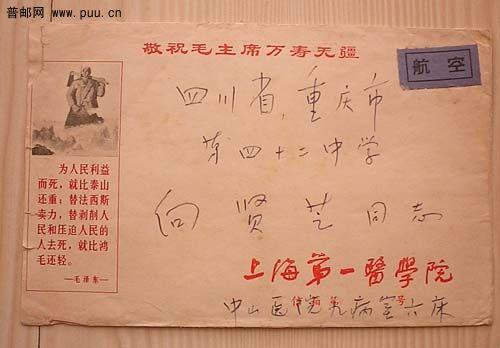 普邮网
www.puu.cn
敬祝毛主席万寿无疆
航空
四川省,重庆市
第四十二中学
向贤芝同志
为人民利益
而死,就比泰山
还重;替法西斯
卖力,替剥削人
民和压迫人民的
人去死,就比鸿
毛还轻。
—毛泽东—
上海第一醫学院
中山医院九病室六床
号